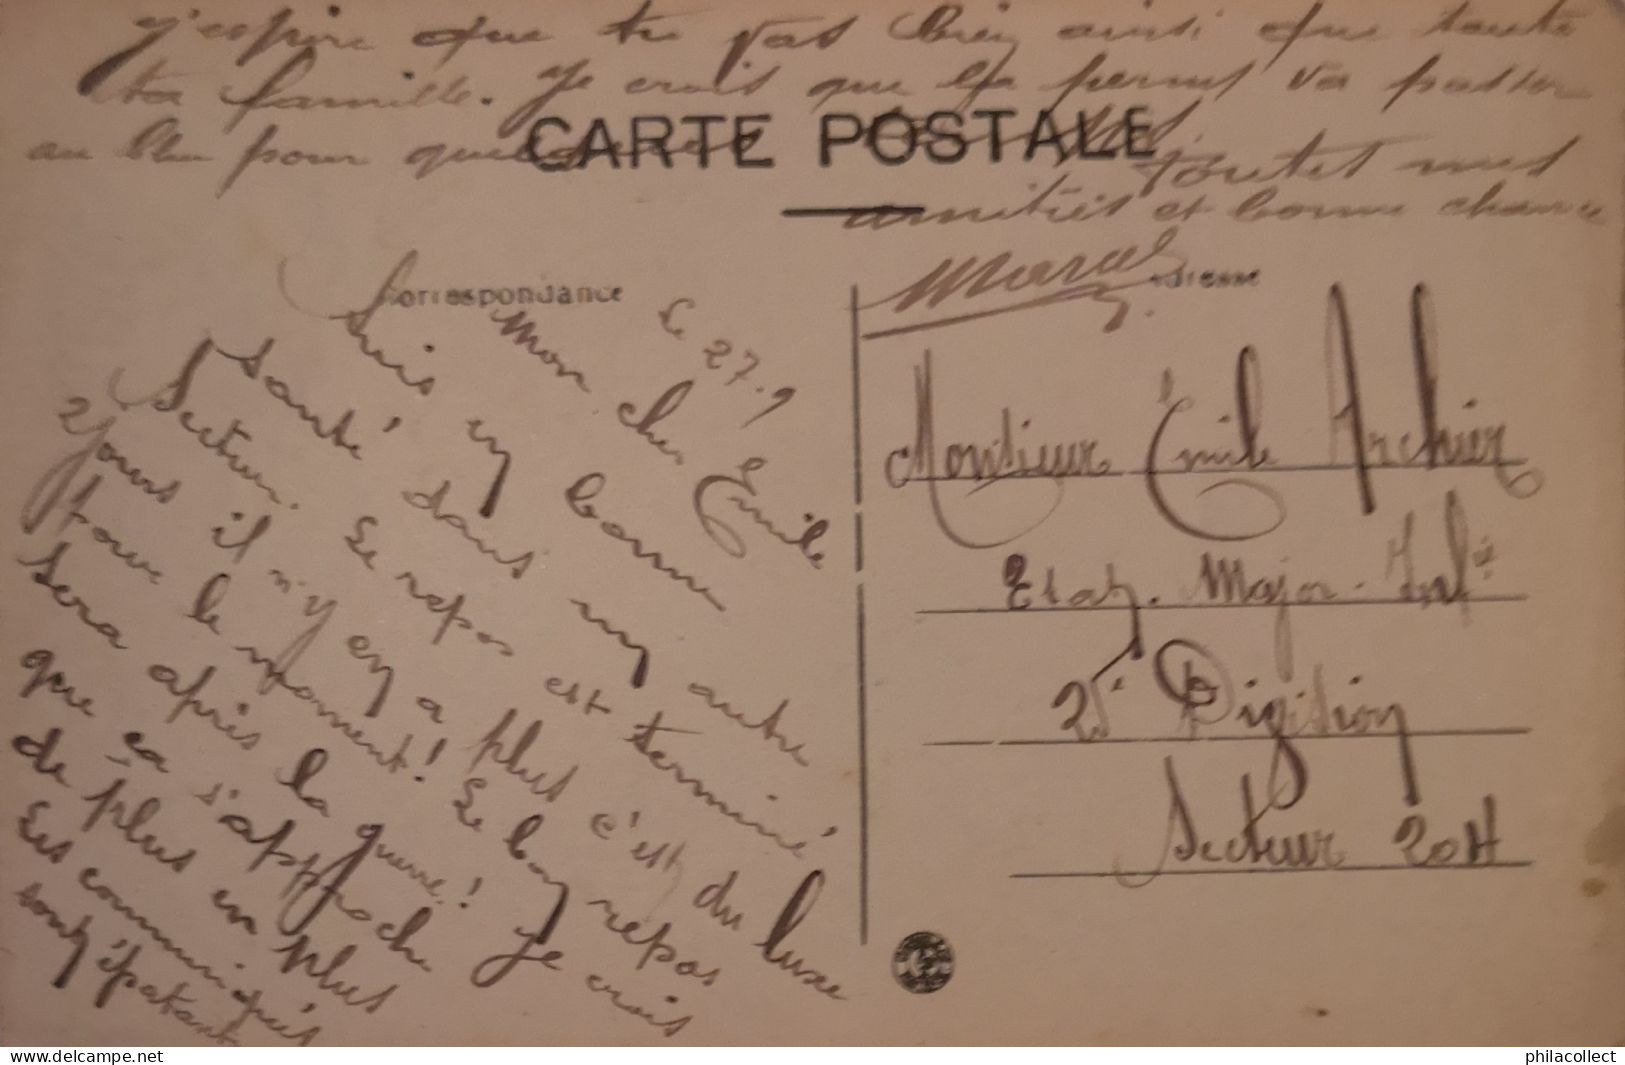 j'espère que tu vas bien ainsi que toute
ta famille. Je crois que la perm va passer
au bleu pour
CARTE POSTALE
toutes mes
amitiés et bonne chance
Marcel
Correspondance
Adresse
Le 27.9
Mon cher Emile
Suis en bonne
santé dans un autre
Secteur. Le repos est terminé
2 jours il n'y en a plus c'est du luxe
pour le moment! Le bon repos
sera après la guerre! Je crois
que ça s'approche
de plus en plus
Les communiqués
sont épatants
Monsieur Emile Archier
Etat-Major-Inf
2e Division
Secteur 204
www.delcampe.net
philacollect